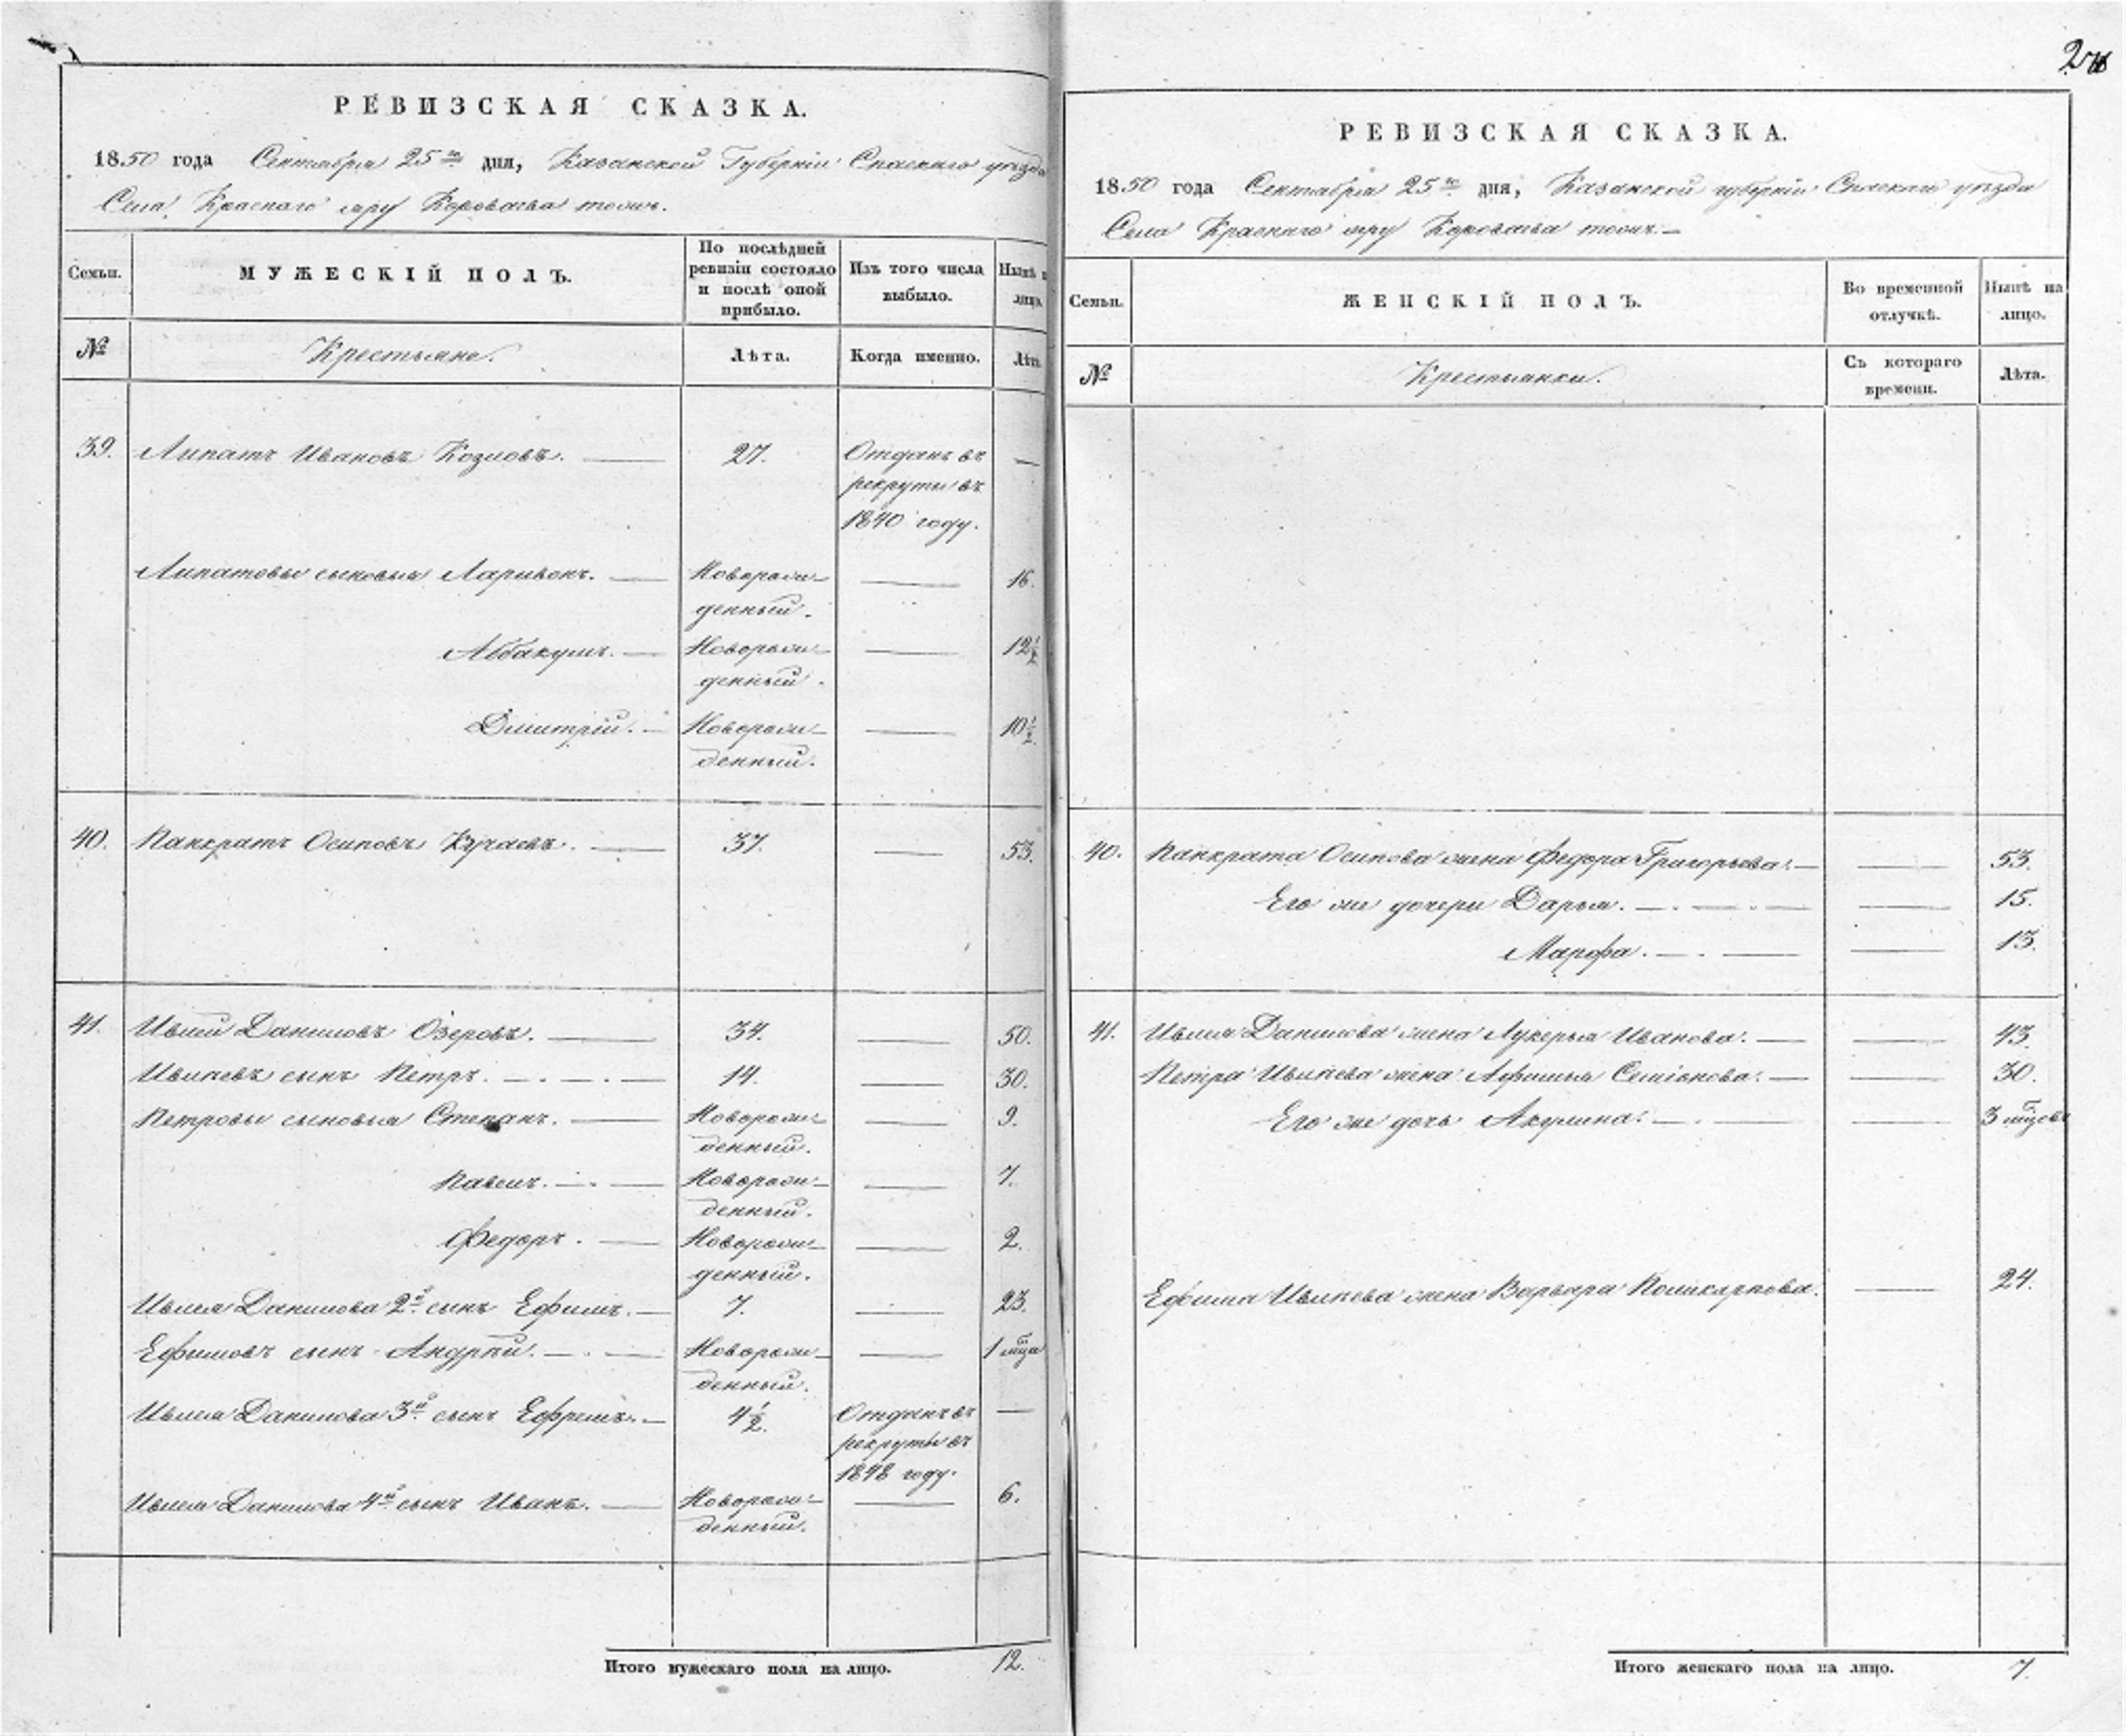 РЕВИЗСКАЯ СКАЗКА.
1850 года Сентября 25го дня, Казанской Губерніи Спаскаго уѣзда
Села Краснаго яру Кароваева тожъ.
Семьи.
МУЖЕСКІЙ ПОЛЪ.
По послѣдней ревизіи состояло и послѣ оной прибыло.
Изъ того числа выбыло.
Нынѣ на лицо.
№
Крестьяне.
Лѣта.
Когда именно.
Лѣта
39. Липатъ Ивановъ Козловъ. — 27. Отданъ въ —
рекруты въ
1840 году.
Липатовы сыновья Ларивонъ. — Новорож- — 16.
денный.
Аббакумъ. — Новорож- — 12½
денный.
Дмитрій. — Новорож- — 10½
денный.
40. Панкратъ Осиповъ Кучаевъ. — 37. — 53.
41. Ивлей Даниловъ Озеровъ. — 34. — 50.
Ивлиевъ сынъ Петръ. — 14. — 30.
Петровы сыновья Степанъ. — Новорож- — 9.
денный.
Павелъ. — Новорож- — 7.
денный.
Федоръ. — Новорож- — 2.
денный.
Ивлея Данилова 2й сынъ Ефимъ. — 7. — 23.
Ефимовъ сынъ Андрѣй. — Новорож- — 1 мца
денный.
Ивлея Данилова 3й сынъ Ефремъ. — 4½. Отданъ въ —
рекруты въ
1848 году.
Ивлея Данилова 4й сынъ Иванъ. — Новорож- — 6.
денный.
Итого мужескаго пола на лицо. 12.
РЕВИЗСКАЯ СКАЗКА.
1850 года Сентября 25го дня, Казанской губерніи Спаскаго уѣзда
Села Краснаго яру Кароваева тожъ. —
Семьи.
ЖЕНСКІЙ ПОЛЪ.
Во временной отлучкѣ.
Нынѣ на лицо.
№
Крестьянки.
Съ котораго времени.
Лѣта.
40. Панкрата Осипова жена Федора Григорьева. — — 53.
Его же дочери Дарья. — — 15.
Марфа. — — 13.
41. Ивлея Данилова жена Лукерья Иванова. — — 43.
Петра Ивлиева жена Афимья Семіонова. — — 30.
Его же дочь Акулина. — — 3 мцевъ
Ефима Ивлиева жена Варвара Поликарпова. — 24.
Итого женскаго пола на лицо. 7.